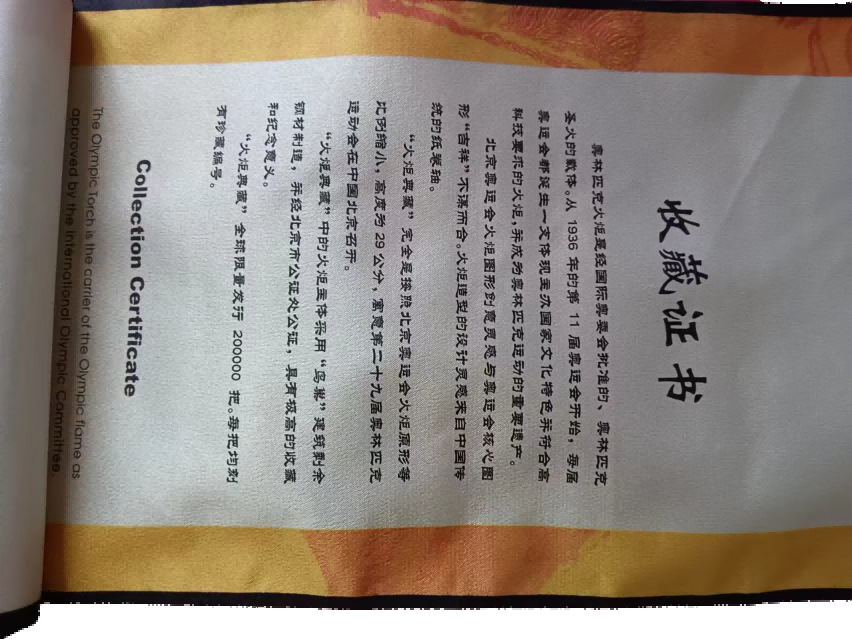 收藏证书
奥林匹克火炬是经国际奥委会批准的、奥林匹克
圣火的载体。从 1936 年的第 11 届奥运会开始，每届
奥运会都诞生一支体现主办国家文化特色并符合高
科技要求的火炬，并成为奥林匹克运动的重要遗产。
北京奥运会火炬图形创意灵感与奥运会核心图
形“吉祥”不谋而合。火炬造型的设计灵感来自中国传
统的纸卷轴。
“火炬典藏”完全是按照北京奥运会火炬原形等
比例缩小，高度为 29 公分，寓意第二十九届奥林匹克
运动会在中国北京召开。
“火炬典藏”中的火炬主体采用“鸟巢”建筑剩余
钢材制造，并经北京市公证处公证，具有极高的收藏
和纪念意义。
“火炬典藏”全球限量发行 200000 把。每把均刻
有珍藏编号。
Collection Certificate
The Olympic Torch is the carrier of the Olympic flame as
approved by the International Olympic Committee.